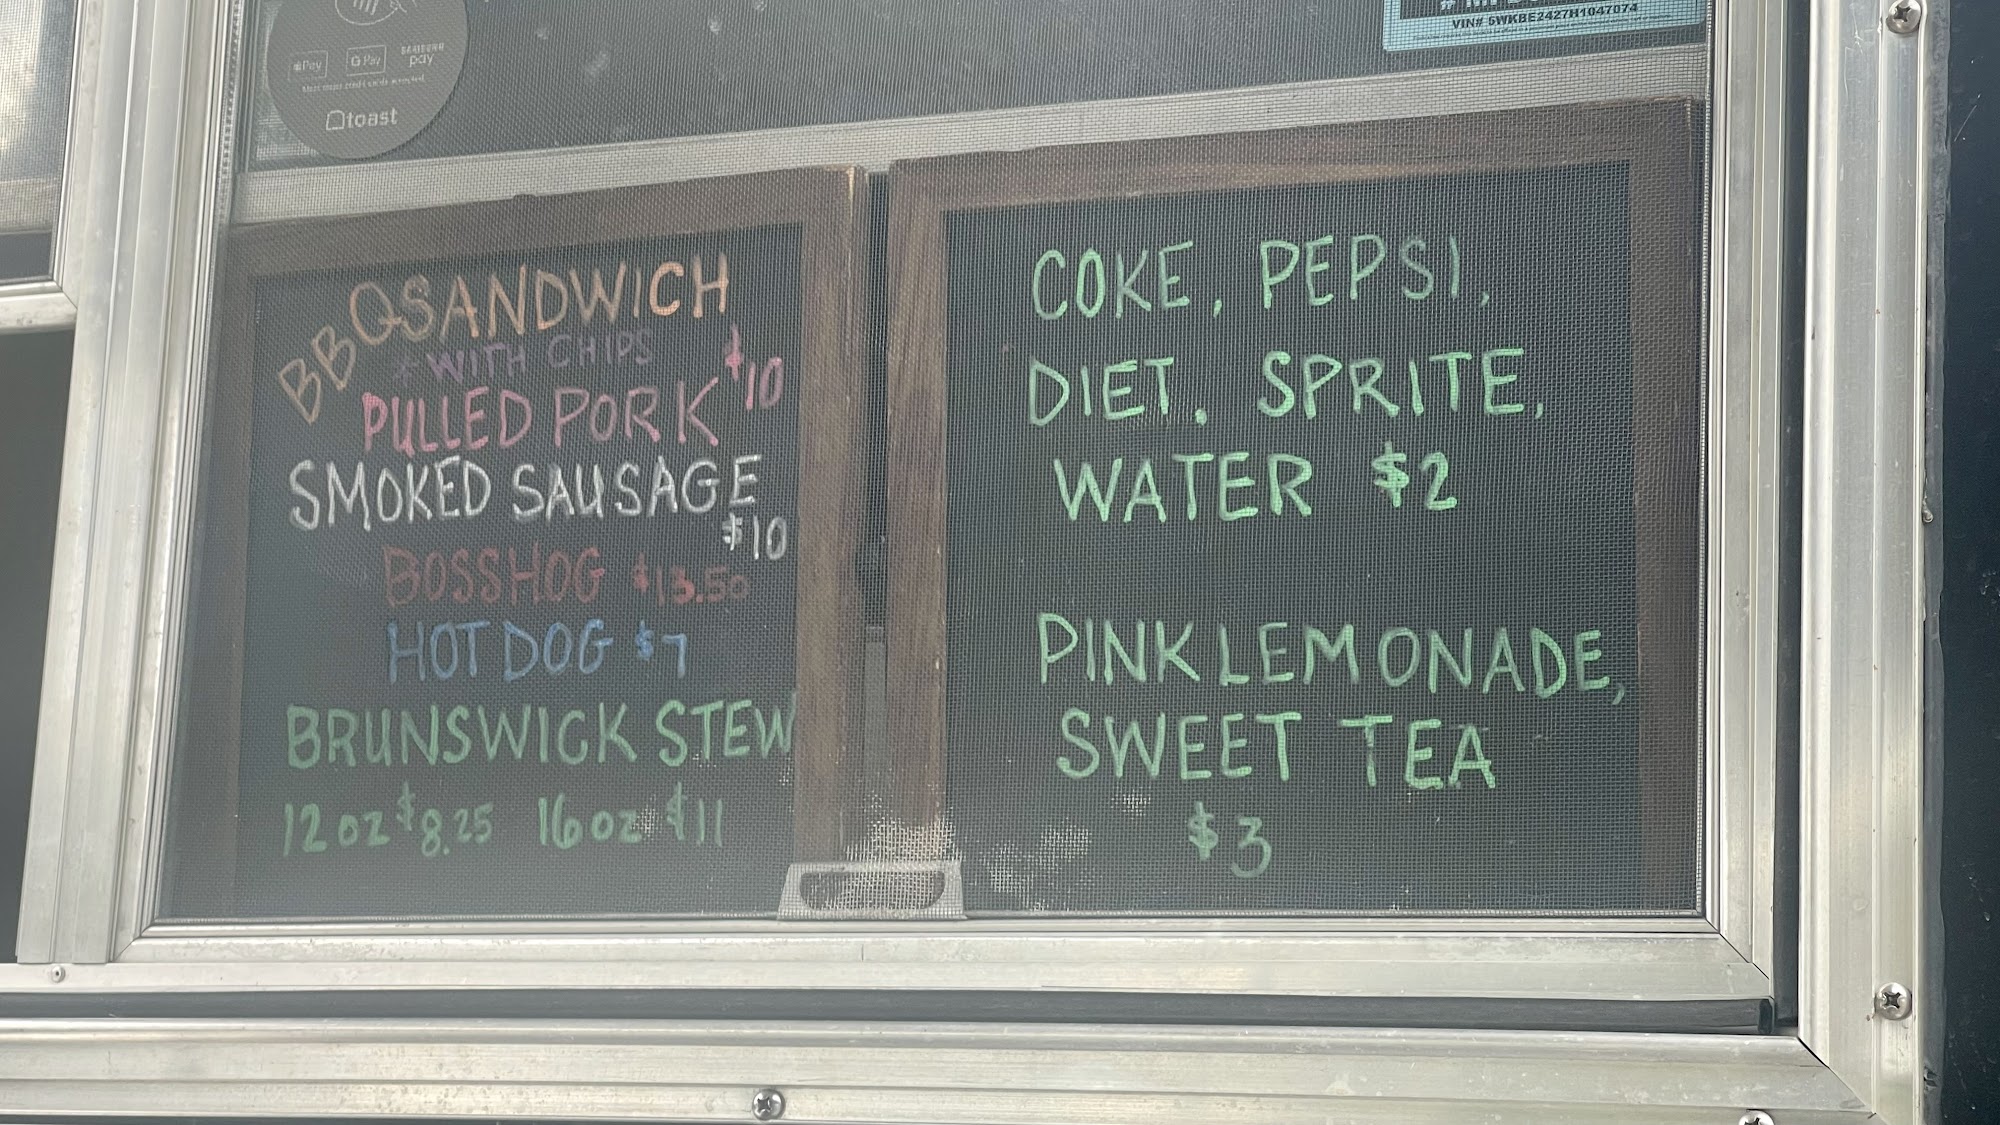 Pay
G Pay
SAMSUNG pay
toast
VIN# 5WKBE2427H1047074
BBQ SANDWICH
+ WITH CHIPS
PULLED PORK $10
SMOKED SAUSAGE
$10
BOSSHOG $13.50
HOT DOG $7
BRUNSWICK STEW
12oz $8.25 16oz $11
COKE, PEPSI,
DIET, SPRITE,
WATER $2
PINK LEMONADE,
SWEET TEA
$3